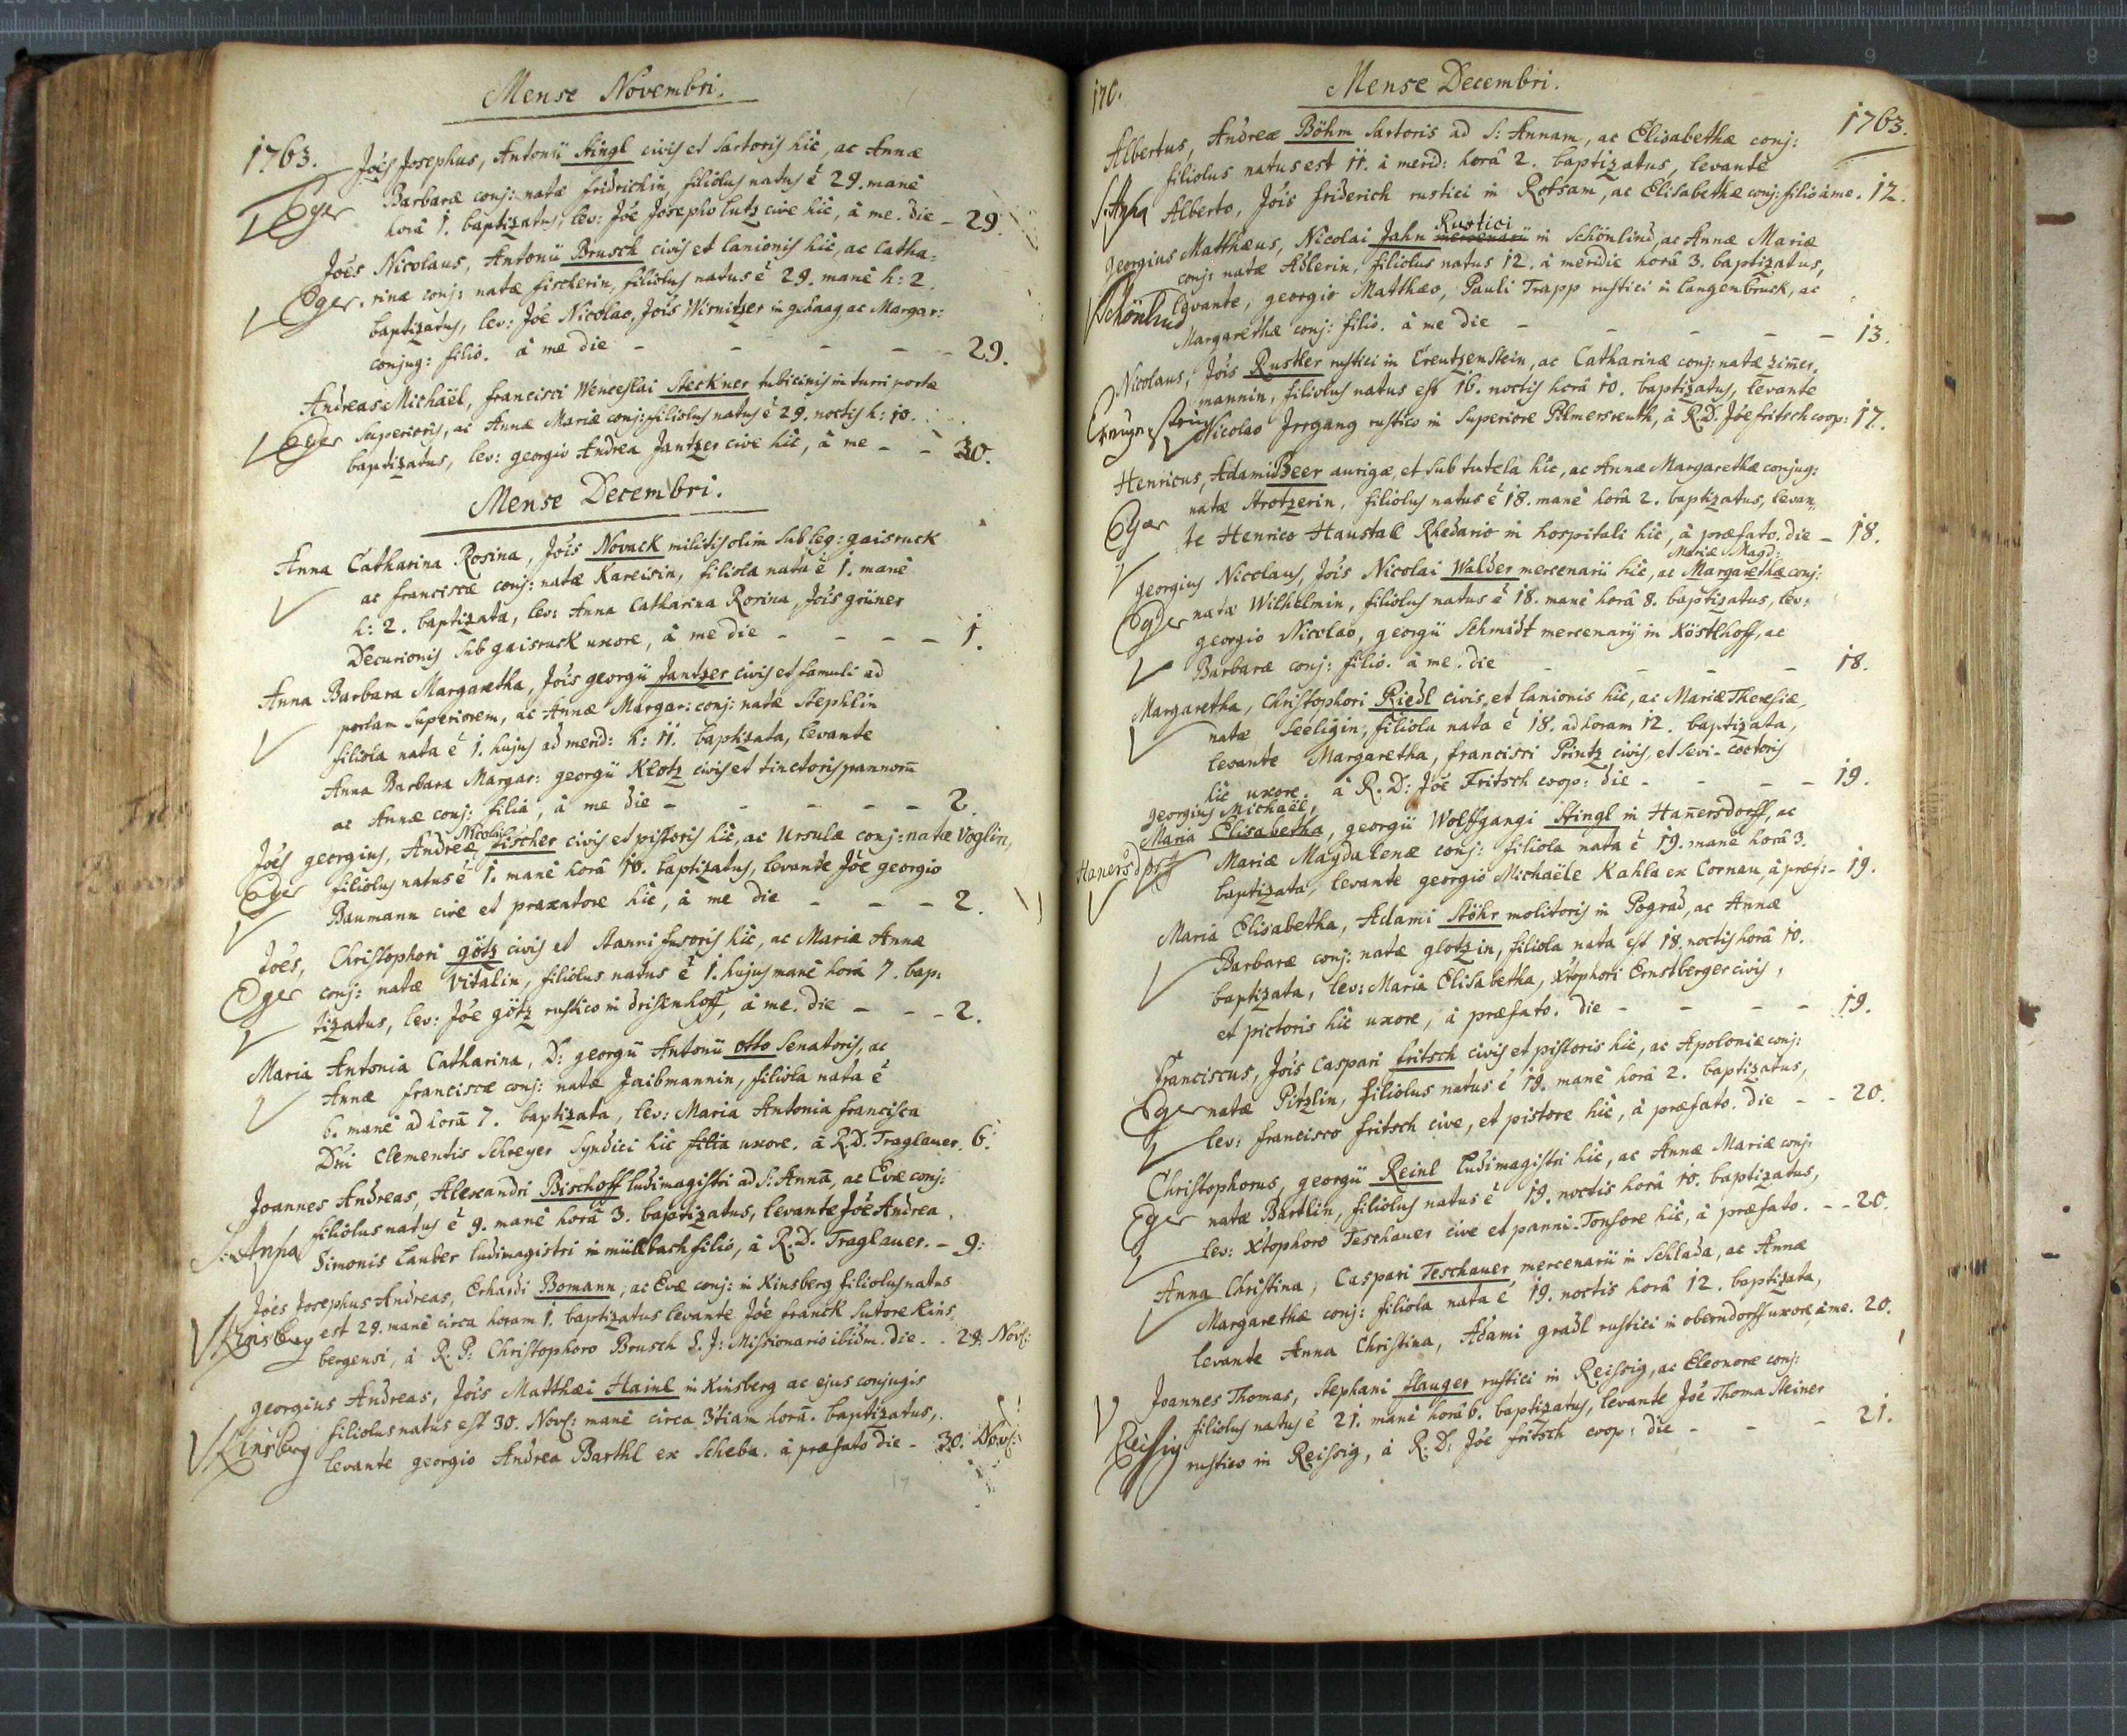 Mense Novembri.
1763. Joēs Josephus, Antonii Stingl civis et Sartoris hic, ac Annæ
Barbaræ conj: natæ fridrichin, filiolus natus ē 29. manè
Eger horâ 1. baptizatus, lev: Jōe Josepho Lutz cive hic, à me. die - 29.
Joēs Nicolaus, Antonii Brusch civis et lanionis hic, ac Catha-
Eger. rinæ conj: natæ fischerin, filiolus natus ē 29. manè h: 2.
baptizatus, lev: Jōe Nicolao, Jōis Wirnitzer in gehaag ac Margar:
conjug: filio. à me die - - - - - 29.
Andreas Michaël, francisci Wenceslai Steckner tubicinis in turri portæ
Eger Superioris, ac Annæ Mariæ conj: filiolus natus ē 29. noctis h: 10.
baptizatus, lev: georgio Andrea Jantzer cive hic, à me - - 30.
Mense Decembri.
Anna Catharina Rosina, Jōis Novack militis olim sub leg: gaisruck
ac franciscæ conj: natæ Kareisin, filiola nata ē 1. manè
h: 2. baptizata, lev: Anna Catharina Rosina, Jōis grüner
Decurionis sub gaisruck uxore, à me die - - - - 1.
Anna Barbara Margaretha, Jōis georgii Jantzer civis et famuli ad
portam superiorem, ac Annæ Margar: conj: natæ Stephlin
filiola nata ē 1. hujus ad merid: h: 11. baptizata, levante
Anna Barbara Margar: georgii Klotz civis et tinctoris pannorū
ac Annæ conj: filiâ, à me die - - - - - 2.
Nicolai
Joēs georgius, Andreæ fischer civis et pistoris hic, ac Ursulæ conj: natæ Voglin,
Eger filiolus natus ē 1. manè horâ 10. baptizatus, levante Jōe georgio
Baumann cive et praxatore hic, à me die - - - 2.
Joēs, Christophori götz civis et stanni fusoris hic, ac Mariæ Annæ
Eger conj: natæ Vitalin, filiolus natus ē 1. hujus manè horâ 7. bap-
tizatus, lev: Jōe götz rustico in drisenhoff, à me. die - - - 2.
Maria Antonia Catharina, D: georgii Antonii Otto Senatoris, ac
Annæ franciscæ conj: natæ Jaibmannin, filiola nata ē
6. manè ad horā 7. baptizata, lev: Maria Antonia francisca
Dñi Clementis Schreyer Syndici hic filia uxore. à R.D. Traglauer. 6.
Joannes Andreas, Alexandri Bischoff ludimagistri ad S: Annā, ac Evæ conj:
S: Anna filiolus natus ē 9. manè horâ 3. baptizatus, levante Jōe Andrea
Simonis Lauber ludimagistri in müllbach filio, à R.D. Traglauer. - 9:
Joēs Josephus Andreas, Erhardi Bomann, ac Evæ conj: in Kinsberg filiolus natus
Kinsberg est 29. manè circa horam 1. baptizatus levante Jōe franck Sutore Kins
bergensi, à R. P: Christophoro Brusch S. J: Missionario ibidm. die. . 29: Nov:
georgius Andreas, Jōis Matthæi Hainl in Kinsberg ac ejus conjugis
Kinsberg filiolus natus est 30. Nov: manè circa 3tiam horā. baptizatus,
levante georgio Andrea Barthl ex Scheba. à præfato die - 30. Nov:
170. Mense Decembri.
1763.
Albertus, Andreæ Böhm Sartoris ad S: Annam, ac Elisabethæ conj:
filiolus natus est 11. à merid: horâ 2. baptizatus, levante
S: Anna Alberto, Jōis friderich rustici in Rotsam, ac Elisabethæ conj: filio à me. 12.
Rustici
Georgius Matthæus, Nicolai Jahn mercenarii in Schönlind, ac Annæ Mariæ
conj: natæ Adlerin, filiolus natus 12. à meridie horâ 3. baptizatus,
Schönlind levante, georgio Matthæo, Pauli Trapp rustici in Langenbruck, ac
Margarethæ conj: filio. à me die - - - - - 13.
Nicolaus, Jōis Rustler rustici in Creutzenstein, ac Catharinæ conj: natæ Zim̄er-
mannin, filiolus natus est 16. noctis horâ 10. baptizatus, levante
Nicolao Jrrgang rustico in Superiore Pilmersreuth, à R.D. Jōe fritsch coop: 17.
Henricus, Adami Beer aurigæ, et sub tutela hic, ac Annæ Margarethæ conjug:
Eger natæ Strotzerin, filiolus natus ē 18. manè horâ 2. baptizatus, levan-
te Henrico Haustall Rhedario in hospitali hic, à præfato. die - 18.
Mariæ Magd:
Georgius Nicolaus, Jōis Nicolai Walder mercenarii hic, ac Margarethæ conj:
Eger natæ Wilhelmin, filiolus natus ē 18. manè horâ 8. baptizatus, lev:
georgio Nicolao, georgii Schmidt mercenarij in Köstlhoff, ac
Barbaræ conj: filio. à me. die - - - - 18.
Margaretha, Christophori Riedl civis, et lanionis hic, ac Mariæ Theresiæ
natæ Seeligin, filiola nata ē 18. ad horam 12. baptizata,
levante Margaretha, francisci Printz civis, et sevi-coctoris
hic uxore. à R.D: Jōe Fritsch coop: die - - - - 19.
Georgius Michaël,
Maria Elisabetha, georgii Wolffgangi Stingl in Han̄ersdorff, ac
Hanersdorff Mariæ Magdalenæ conj: filiola nata ē 19. manè horâ 3.
baptizata, levante georgio Michaële Kahla ex Cornau, à præf: - 19.
Maria Elisabetha, Adami Stöhr molitoris in Pograd, ac Annæ
Barbaræ conj: natæ glotzin, filiola nata est 18. noctis horâ 10.
baptizata, lev: Maria Elisabetha, Xtophori Ernstberger civis,
et pictoris hic uxore, à præfato. die - - - - 19.
Franciscus, Jōis Caspari fritsch civis et pistoris hic, ac Apoloniæ conj:
Eger natæ Pitzlin, filiolus natus ē 19. manè horâ 2. baptizatus,
lev: francisco fritsch cive, et pistore hic, à præfato. die - - 20.
Christophorus, georgii Reinl Ludimagistri hic, ac Annæ Mariæ conj:
Eger natæ Bartlin, filiolus natus ē 19. noctis horâ 10. baptizatus,
lev: Xtophoro Teschauer cive et panni-Tonsore hic, à præfato. - - 20.
Anna Christina, Caspari Teschauer mercenarii in Schlada, ac Annæ
Margarethæ conj: filiola nata ē 19. noctis horâ 12. baptizata,
levante Anna Christina, Adami gradl rustici in oberndorff uxore, à me. 20.
Joannes Thomas, Stephani Stauger rustici in Reissig, ac Eleonoræ conj:
filiolus natus ē 21. manè horâ 6. baptizatus, levante Jōe Thoma Steiner
Reissig rustico in Reissig, à R. D: Jōe fritsch coop: die - - - 21.